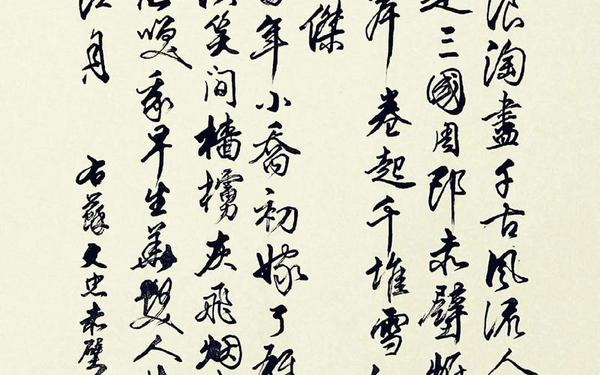 浪淘盡千古風流人
是三國周郎赤壁
岸卷起千堆雪
傑
年小喬初嫁了雄
笑間檣櫓灰飛烟
咲我早生華髮人
江月
右蘇文忠赤壁